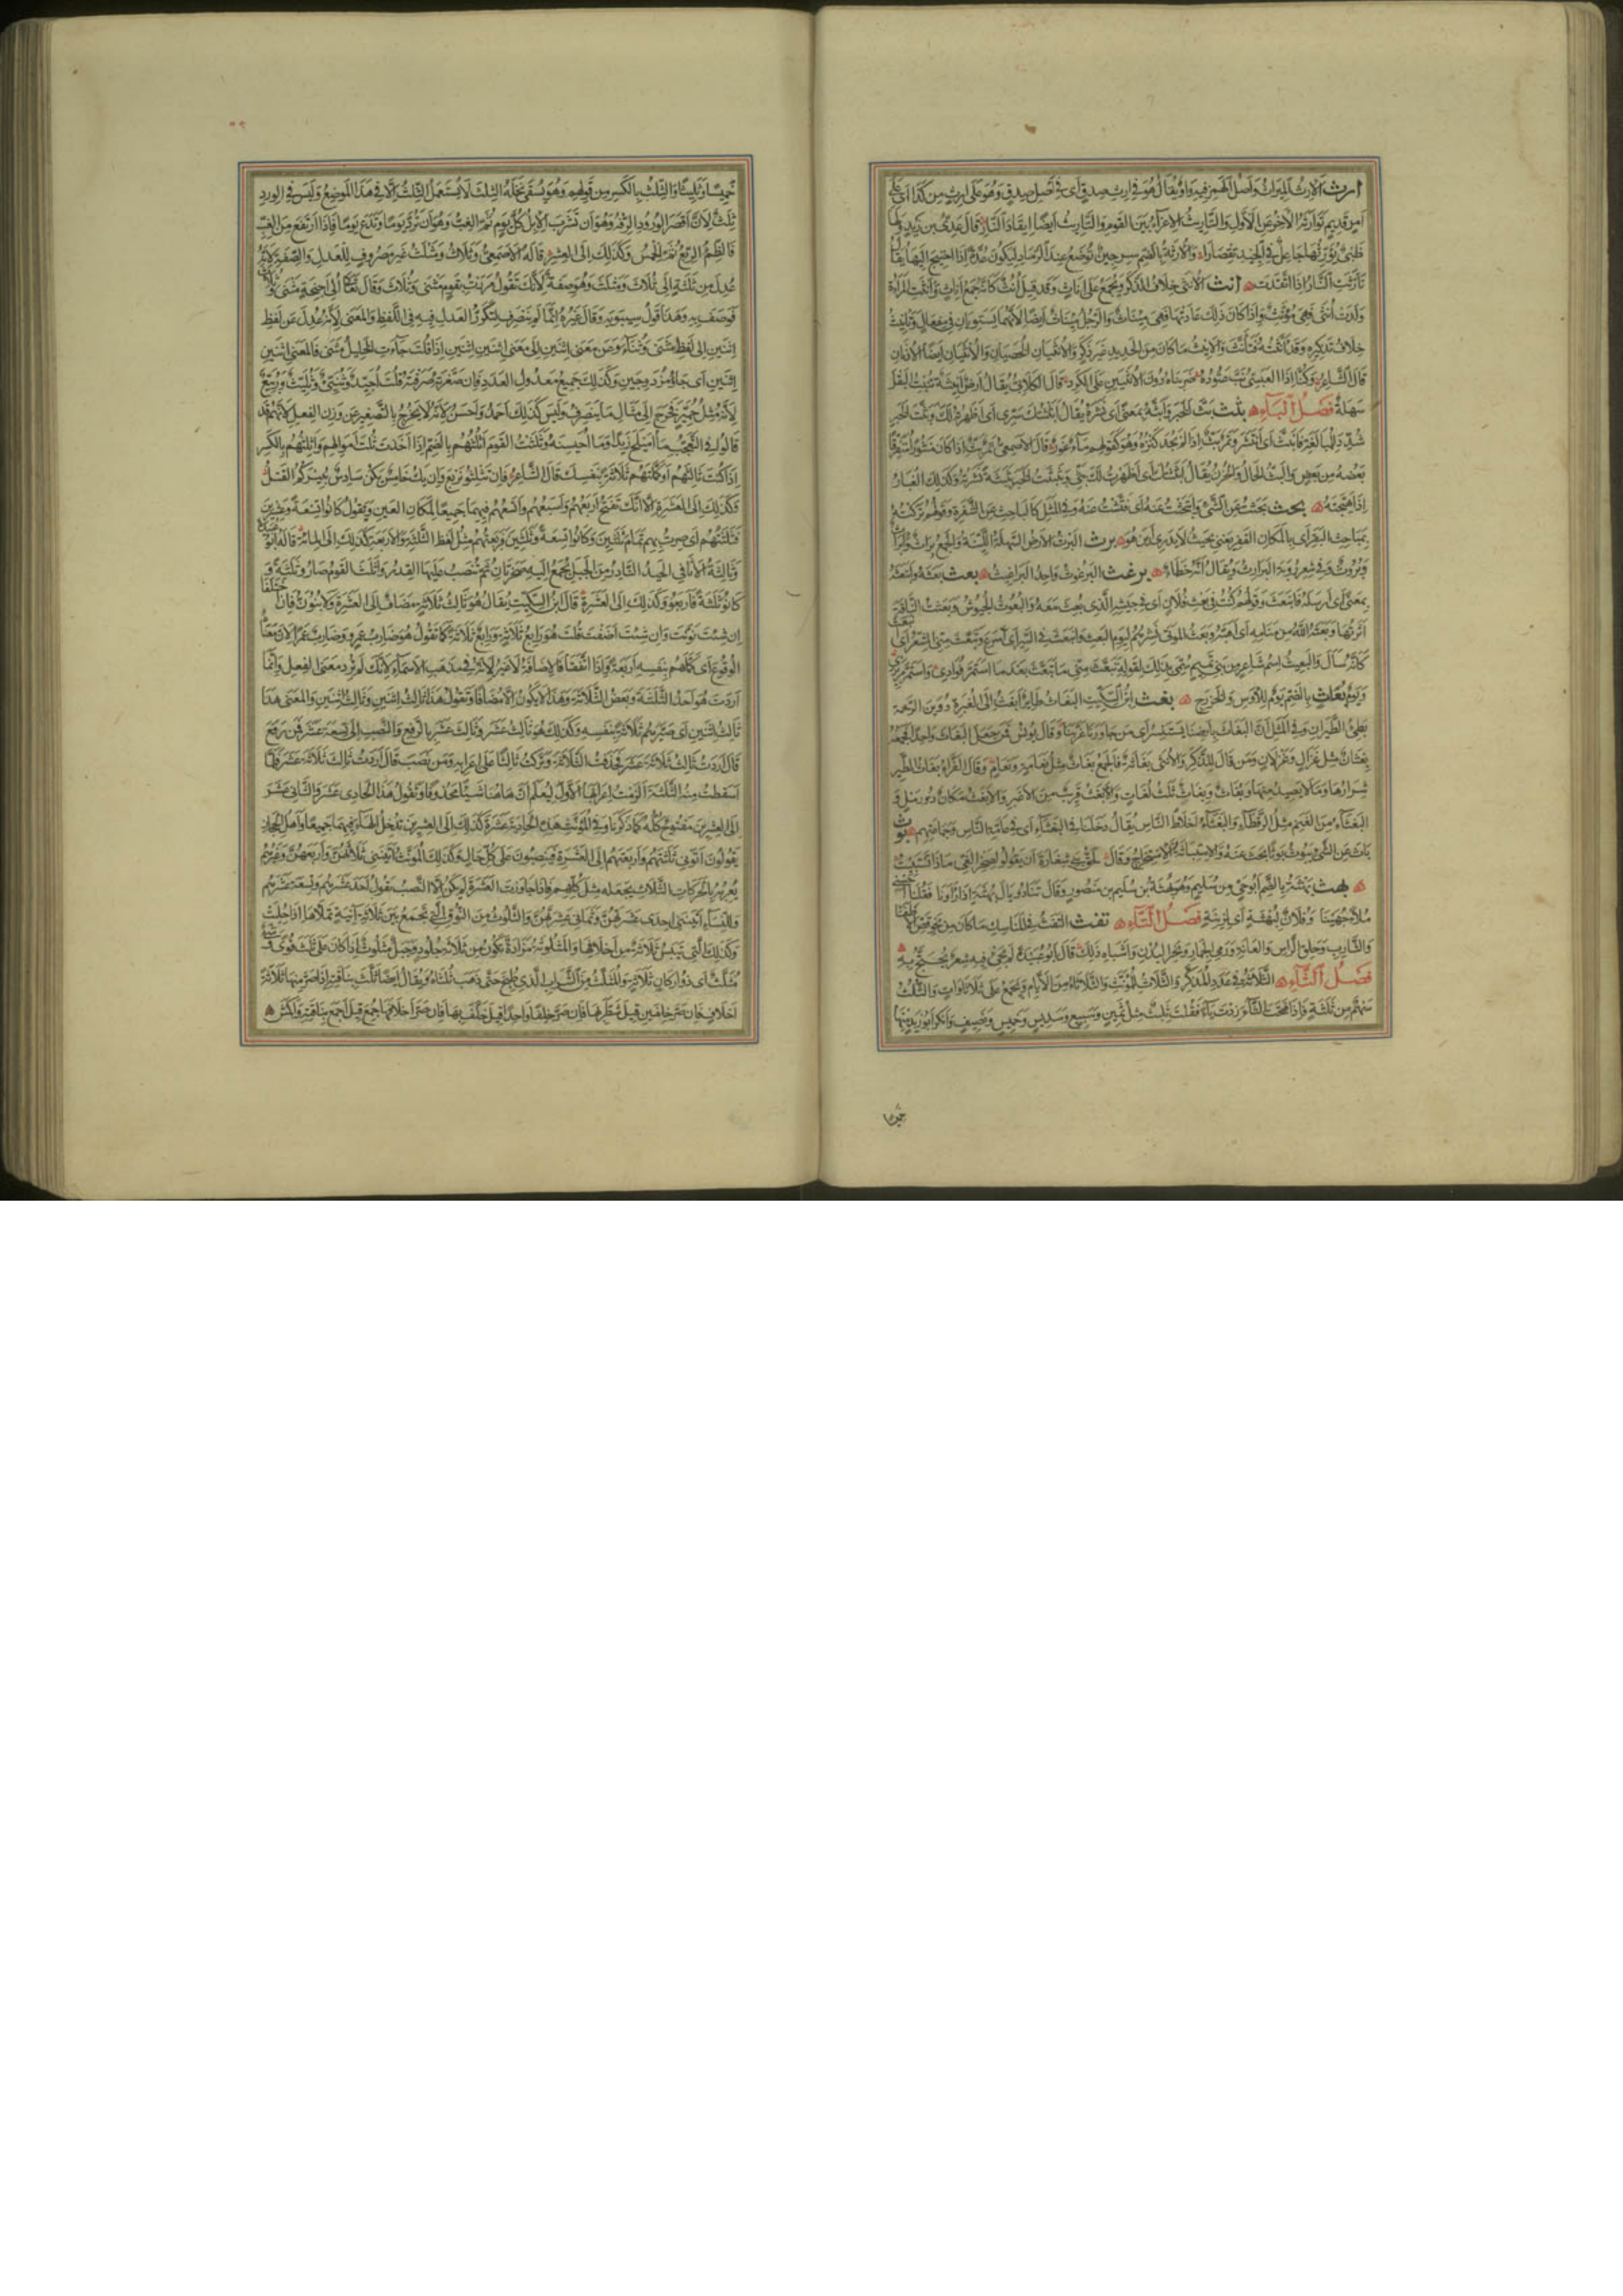 ارث الارث الميراث واصل الهمز فيه واو يقال هو في ارث صدق اى في اصل صدق وهو على ارث من كذا اى على
امر قديم توارثه الآخر عن الاول والتاريث الاغراء بين القوم والتاريث ايضا ايقاد النار قال عدى بن زيد ولها
ظبى يؤرثها جاعل في الجيد تقصارا والارثة بالضم سرجين توضع عند الرماد ليكون عدة اذا احتيج اليها يقال
تارثت النار اذا اتقدت انث الانثى خلاف الذكر ويجمع على اناث وقد قيل انث كانه جمع اناث وآنثت المرأة
ولدت انثى فهى مؤنث واذا كان ذلك عادتها فهى ميناث والرجل ميناث ايضا لانهما يستويان في مفعال وتانيث
خلاف تذكيره وقد انثته فتانث والانيث ما كان من الحديد غير ذكر والانثيان الخصيان والانثيان ايضا الاذنان
قال الشاعر وكنا اذا العبسى نب عتوده ضربناه دون الانثيين على الكرد قال الكلابى يقال ارض انيثة تنبت البقل
سهلة فصل الباء بثث بث الخبر وابثه بمعنى اى نشره يقال ابثثتك سرى اى اظهرته لك وبثث الخبر
شدد للمبالغة فانبث اى انتشر وتمر بث اذا لم يجد كنزه وهو كقولهم ماء غور قال الاصمعى تمر بث اذا كان منثورا متفرقا
بعضه من بعض والبث الحال والحزن يقال ابثثتك اى اظهرت لك بثى وبثبثت الخبر بثبثة نشرته وكذلك الغبار
اذا هيجته بحث بحثت عن الشئ وابتحثت عنه اى فتشت عنه وفي المثل كالباحث عن الشفرة وقولهم تركته
بمباحث البقر اى بالمكان القفر يعنى بحيث لا يدرى اين هو برث البرث الارض السهلة اللينة والجمع براث وابراث
وبروث وفي شعر رؤبة البرارث ويقال انه خطاء برغث البرغوث واحد البراغيث بعث بعثه وابتعثه
بمعنى اى ارسله فانبعث وقولهم كنت في بعث فلان اى في جيشه الذى بعث معه والبعوث الجيوش وبعثت الناقة
اثرتها وبعثه الله من منامه اى اهبه وبعث الموتى نشرهم ليوم البعث وانبعث في السير اى اسرع وتبعث منى الشعر اى انبعث
كانه سال والبعيث اسم شاعر من بنى تميم سمى بذلك لقوله تبعث منى ما تبعث بعد ما استمر فؤادى واستمر مريرى
ويوم بعاث بالضم يوم للاوس والخزرج بغث ابن السكيت البغاث طاير ابغث الى الغبرة دوين الرخمة
بطئ الطيران وفي المثل ان البغاث بارضنا يستنسر اى من جاورنا عز بنا وقال يونس فمن جعل البغاث واحدا فجمعه
بغثان مثل غزال وغزلان ومن قال للذكر والانثى بغاثة فالجمع بغاث مثل نعامة ونعام وقال الفراء بغاث الطير
شرارها وما لا يصيد منها وبغاث وبغاث ثلث لغات والابغث قريب من الاغبر والابغث مكان ذو رمل و
البغثاء من الغنم مثل الرقطاء والبغثاء اخلاط الناس يقال دخلنا في البغثاء اى في عامة الناس وجماعتهم بوث
باث عن الشئ يبوث بوثا بحث عنه والاستباثة الاستخراج وقال لحق بنى شغارة ان يقولوا لصخر الغى ماذا تستبيث
بهث بهثة بالضم ابو حى من سليم وهو بهثة بن سليم بن منصور وقال تنادوا يال بهثة اذ رأونا فقلنا احسنى
ملأ جهينا وفلان لبهثة اى لزنية فصل التاء تفث التفث في المناسك ما كان من نحو قص الاظفار
والشارب وحلق الراس والعانة ورمى الجمار ونحر البدن واشباه ذلك قال ابو عبيدة لم يجئ فيه شعر يحتج به
فصل الثاء الثلاثة في عدد المذكر والثلاث للمؤنث والثلاثاء من الايام ويجمع على ثلاثاوات والثلث
سهم من ثلثة فاذا فتحت الثاء زدت ياء فقلت ثليث مثل ثمين وسبيع وسديس وخميس ونصيف وانكر ابو زيد منها
خميسا
خميسا وثليثا والثلث بالكسر من قولهم وهو يسقى نخله الثلث لا يستعمل الثلث الا في هذا الموضع وليس في الورد
ثلث لان اقصر الورد الرفه وهو ان تشرب الابل كل يوم ثم الغب وهو ان ترد يوما وتدع يوما فاذا ارتفع من الغب
فالظمء الربع ثم الخمس وكذلك الى العشر قاله الاصمعى وثلاث ومثلث غير مصروف للعدل والصفة لانه
عدل من ثلثة الى ثلاث ومثلث وهو صفة لانك تقول مررت بقوم مثنى وثلاث وقال تعالى اولى اجنحة مثنى وثلاث
فوصف به وهذا قول سيبويه وقال غيره انما لم ينصرف لتكرر العدل فيه في اللفظ والمعنى لانه عدل عن لفظ
اثنين الى لفظ مثنى وثناء وعن معنى اثنين الى معنى اثنين اثنين اذا قلت جاءت الخيل مثنى فالمعنى اثنين
اثنين اى جاؤا مزدوجين وكذلك جميع معدول العدد فان صغرته صرفته فقلت احيد وثنى وثليث وربيع
لانه مثل حمير فخرج الى مثال ما ينصرف وليس كذلك احمد واحسن لانه لا يخرج بالتصغير عن وزن الفعل لانهم قد
قالوا في التعجب ما اميلح زيدا وما احيسنه وثلثت القوم اثلثهم بالضم اذا اخذت ثلث اموالهم واثلثهم بالكسر
اذا كنت ثالثهم او كملتهم ثلاثة بنفسك قال الشاعر فان تثلثوا نربع وان يك خامس يكن سادس حتى يبيركم القتل
وكذلك الى العشرة الا انك تفتح اربعهم واسبعهم واتسعهم فيهما جميعا لمكان العين وتقول كانوا تسعة وعشرين
فثلثتهم اى صرت بهم تمام ثلثين وكانوا تسعة وثلثين فربعتهم مثل لفظ الثلثة والاربعة كذلك الى المائة قاله ابو عبيدة
وثالثة الاثافى الحيد النادر من الجبل يجمع اليه صخرتان ثم تنصب عليها القدر واثلث القوم صاروا ثلثة و
كانوا ثلثة فاربعوا وكذلك الى العشرة قال ابن السكيت يقال هو ثالث ثلاثة مضاف الى العشرة ولا ينون فان اختلفا
ان شئت نونت وان شئت اضفت قلت هو رابع ثلاثة ورابع ثلاثة كما تقول هو ضارب عمرو وضارب عمرا لان معناه
الوقوع اى كملهم بنفسه اربعة واذا اتفقا فالاضافة لا غير لانه في مذهب الاسماء لانك لم ترد معنى الفعل وانما
اردت هو احد الثلثة وبعض الثلاثة وهذا لا يكون الا مضافا وتقول هذا ثالث اثنين وثالث اثنين والمعنى هذا
ثالث اثنين اى صيرهم ثلاثة بنفسه وكذلك هو ثالث عشر وثالث عشر بالرفع والنصب الى تسعة عشر فمن رفع
قال اردت ثالث ثلاثة عشر فحذفت الثلاثة وتركت ثالثا على اعرابه ومن نصب قال اردت ثالث ثلاثة عشر فلما
اسقطت منه الثلثة الزمت اعرابها الاول ليعلم ان هاهنا شيئا محذوفا وتقول هذا الحادى عشر والثانى عشر
الى العشرين مفتوح كله كما ذكرنا وفي المؤنث هذه الحادية عشرة كذلك الى العشرين تدخل الهاء فيهما جميعا واهل الحجاز
يقولون اتونى ثلثتهم واربعتهم الى العشرة فينصبون على كل حال وكذلك المؤنث اتيننى ثلاثهن واربعهن وغيرهم
يعربه بالحركات الثلاث يجعله مثل كلهم فاذا جاوزت العشرة لم يكن الا النصب تقول احد عشرهم وتسعة عشرهم
وللنساء اتيننى احدى عشرتهن وثمانى عشرتهن والثلوث من النوق التى تجمع بين ثلاثة آنية تملاها اذا حلبت
وكذلك التى تيبس ثلاثة من اخلافها والمثلوثة مزادة تكون من ثلاثة جلود وحبل مثلوث اذا كان على ثلث قوى وشئ
مثلث اى ذو اركان ثلاثة والمثلث من الشراب الذى طبخ حتى ذهب ثلثاه ويقال ايضا ثلث بناقته اذا صر منها ثلاثة
اخلاف فان صر خلفين قيل شطر بها فان صر خلفا واحدا قيل خلف بها فان صر اخلافها جمع قيل اجمع بناقته واكمش